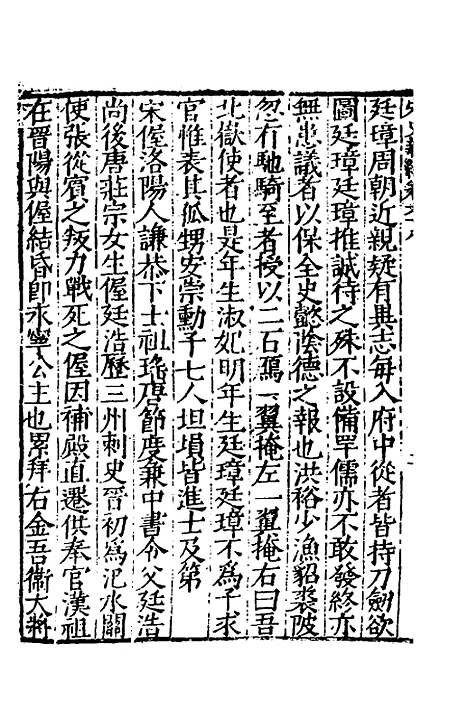 廷璋周朝近親疑有異志每入府中從者皆持刀劍欲
圖廷璋廷璋推誠待之殊不設備罕儒亦不敢發終亦
無患議者以保全史懿陰德之報也洪裕少漁貂裘陂
忽有馳騎至者授以二石鴈一翼掩左一翼掩右曰吾
北嶽使者也是年生淑妃明年生廷璋廷璋不為子求
官惟表其孤甥安崇勳子七人坦塤皆進士及第
宋偓洛陽人謙恭下士祖瑤唐節度兼中書令父廷浩
尚後唐莊宗女生偓廷浩歷三州刺史晉初為汜水關
使張從賓之叛力戰死之偓因補殿直遷供奉官漢祖
在晉陽與偓結昏即永寧公主也累拜右金吾衛大將